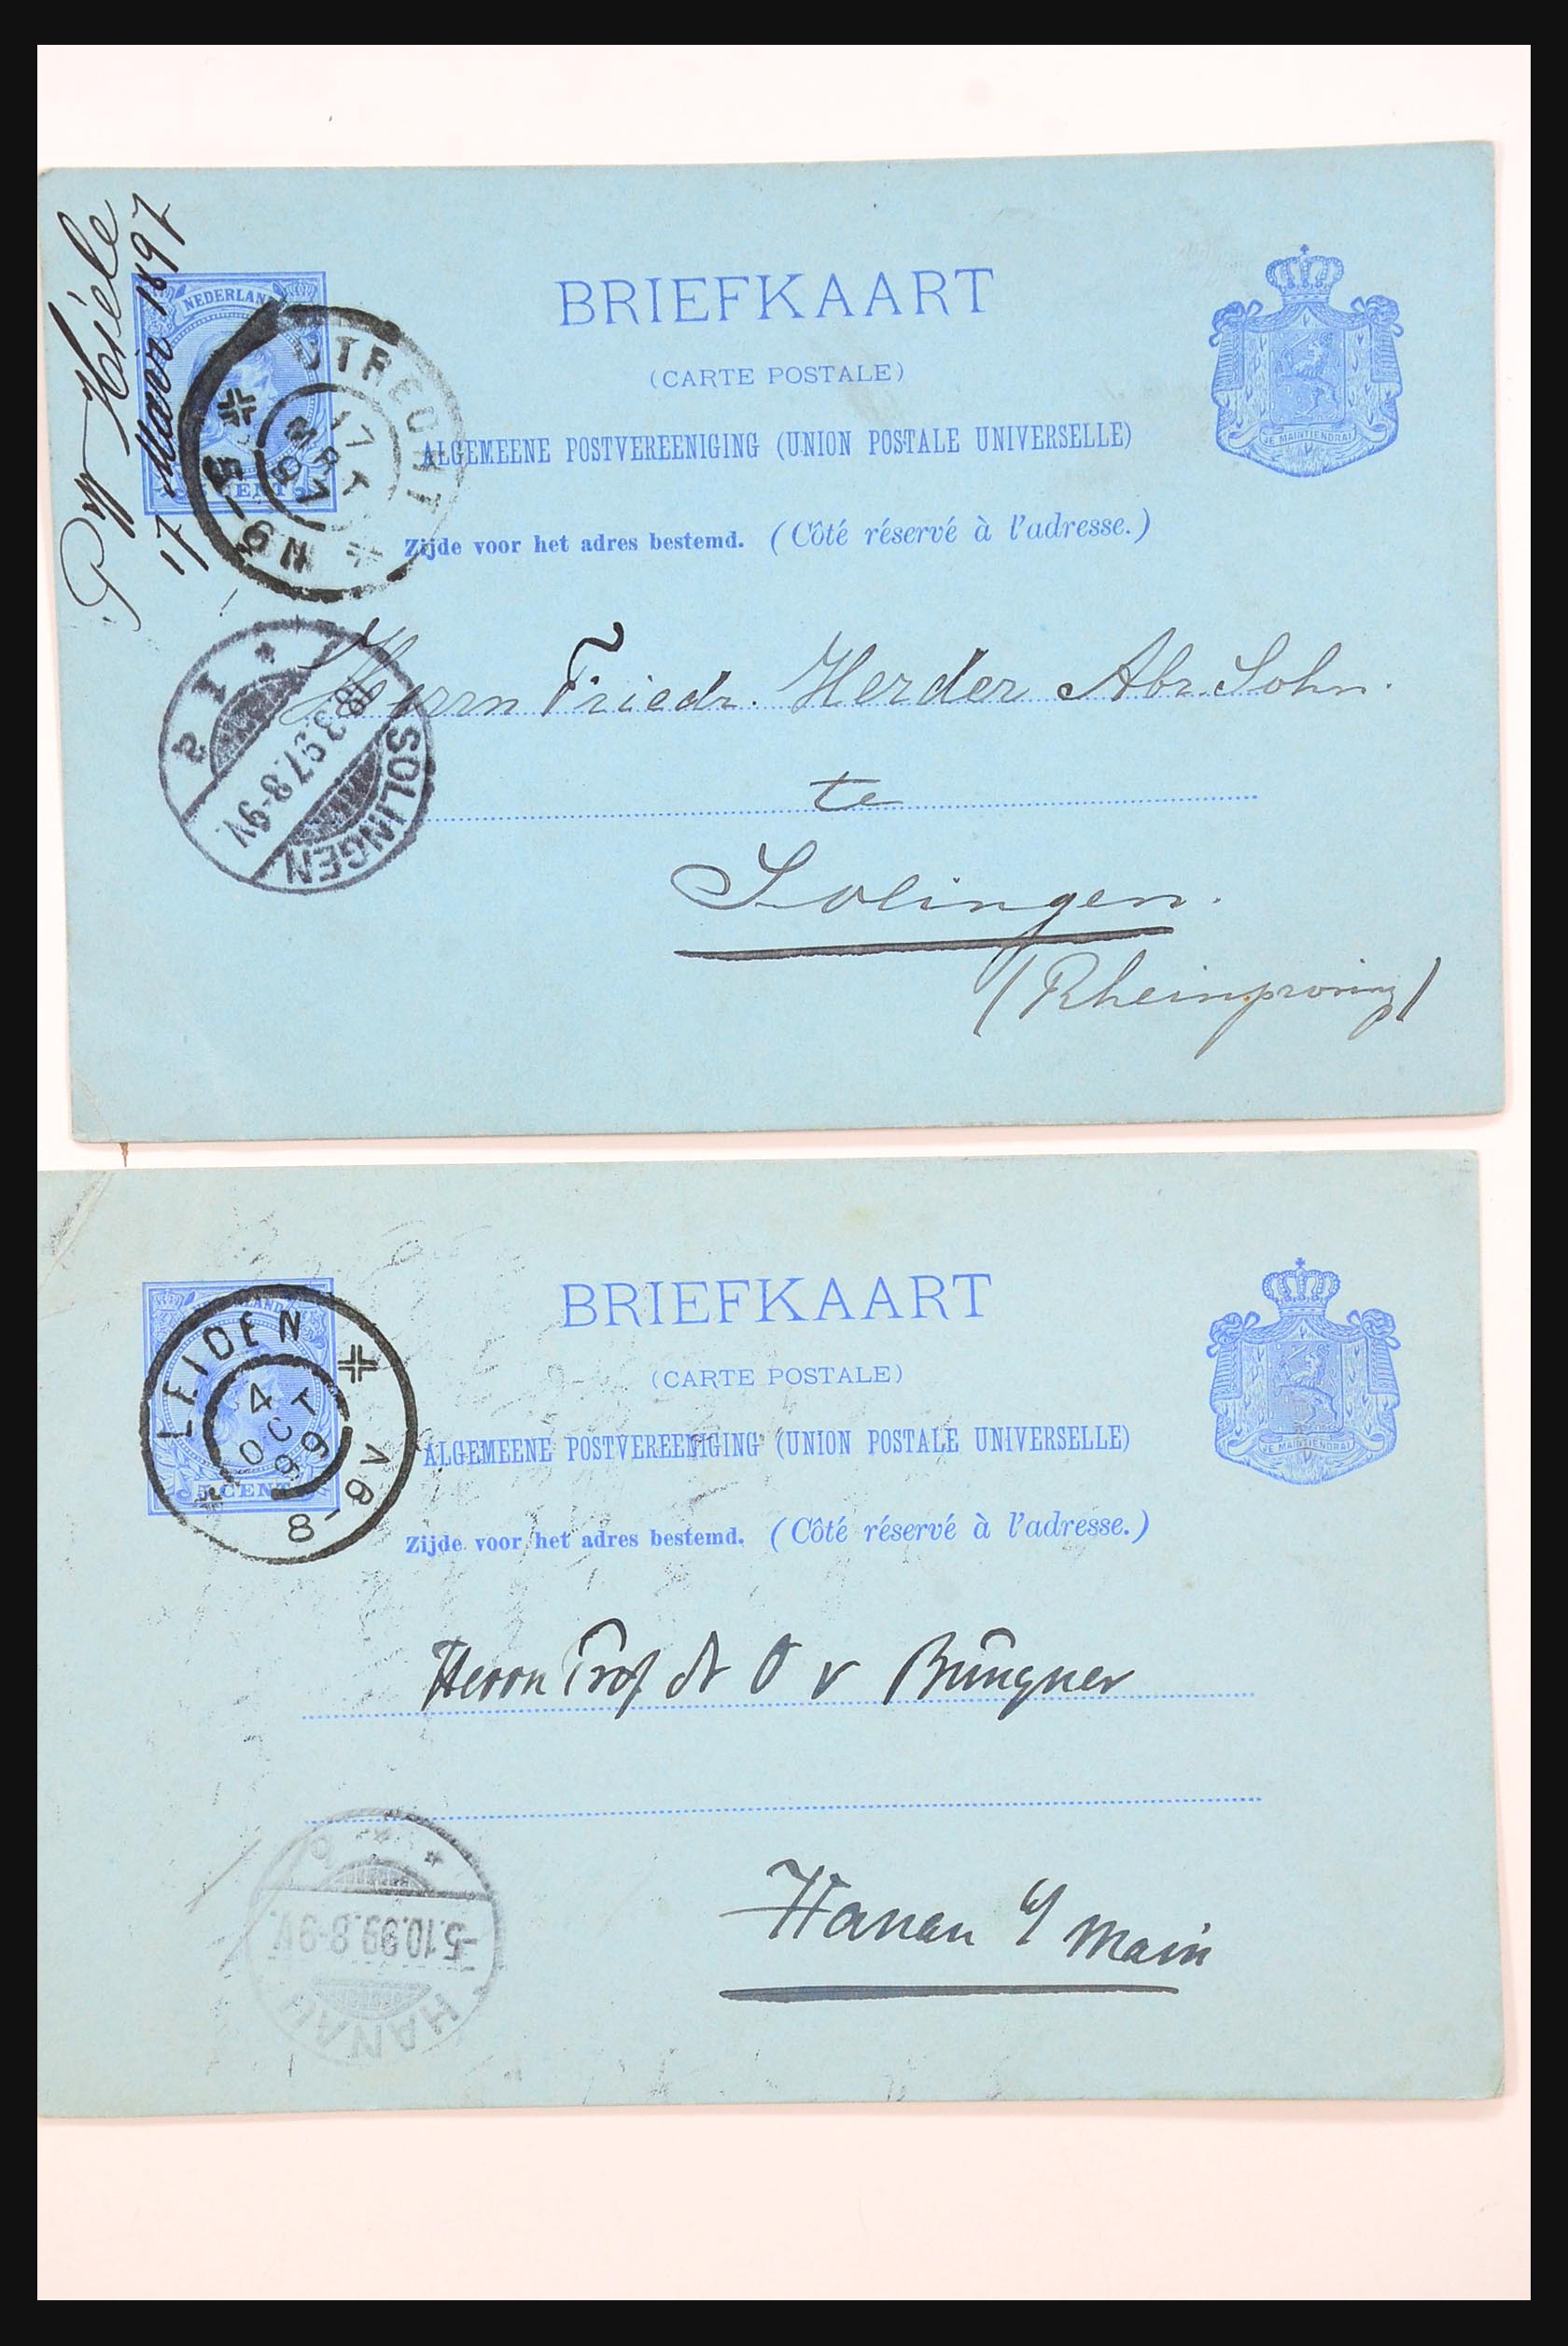 P M Hiéle
17 Maır 1897
NEDERLAND
CENT
UTRECHT
17
MRT
97
5-6N
BRIEFKAART
(CARTE POSTALE)
ALGEMEENE POSTVEREENIGING (UNION POSTALE UNIVERSELLE)
Zijde voor het adres bestemd. (Côté réservé à l'adresse.)
JE MAINTIENDRAI
Herrn Friedr. Herder Abr. Sohn.
te
Solingen.
(Rheinprovinz)
SOLINGEN
18.3.97.8-9V.
1 a
LEIDEN
4
OCT
99
8-9V
5 CENT
BRIEFKAART
(CARTE POSTALE)
ALGEMEENE POSTVEREENIGING (UNION POSTALE UNIVERSELLE)
Zijde voor het adres bestemd. (Côté réservé à l'adresse.)
JE MAINTIENDRAI
Herrn Prof dr O v Büngner
Hanau a/ Main
HANAU
-5.10.99.8-9V.